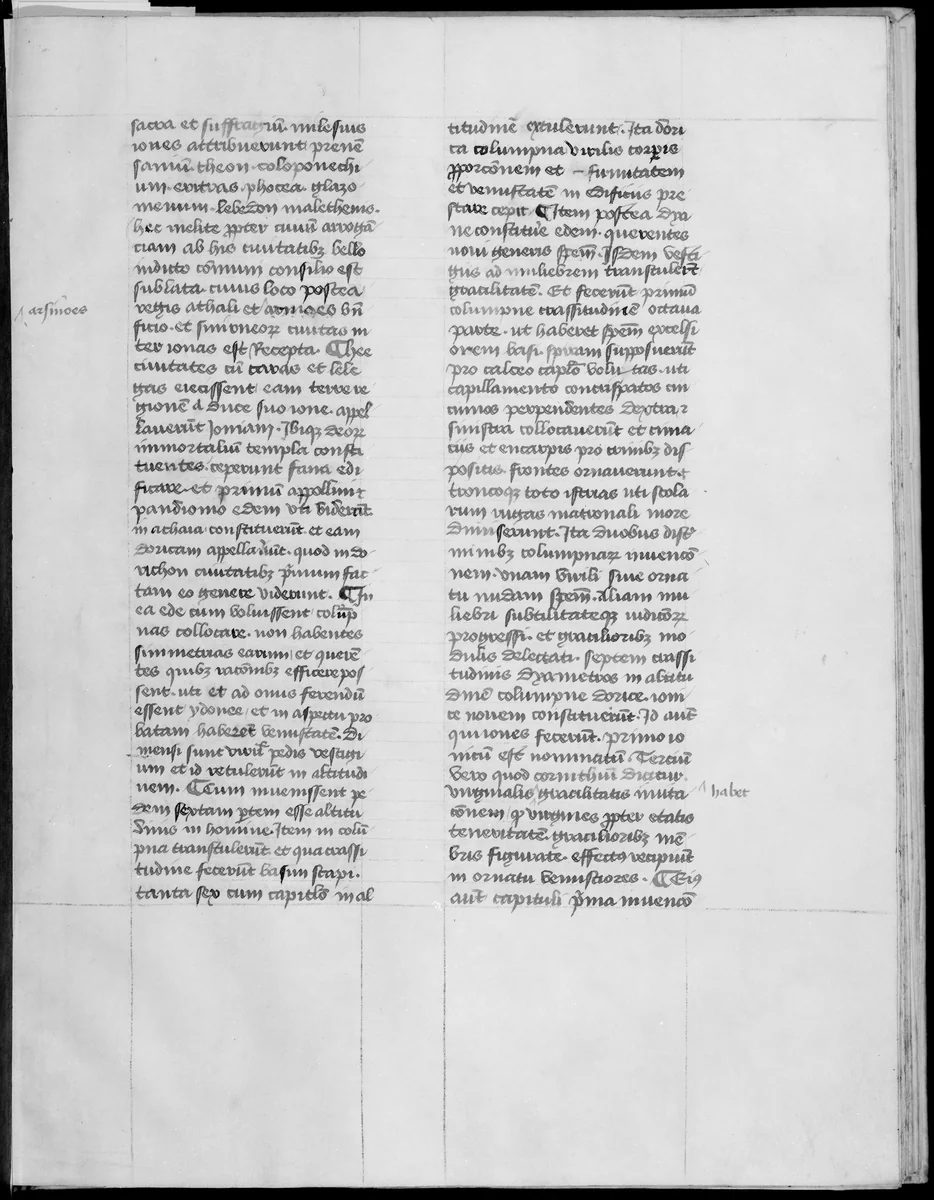 sacra et suffragiū milesius
iones attribuerunt prenen
samiū theon colopouechi
um eritras phocea glazo
menium lebedon malethenis
hec melite ꝓpter ciuiū arrogā
ciam ab his ciuitatibꝫ bello
indicto cōmuni consilio est
sublata cuius loco postea
regis athali et arnioes bn̄
ficio et smirneoꝝ ciuitas in
ter ionas est Recepta Ꞇhee
ciuitates cū caras et lele
gas eiecissent eam terre re
gionē a duce suo ione appel
lauerūt Joniam Ibiqꝫ deoꝝ
immortaliū templa consti
tuentes ceperunt fana edi
ficare et primū appollini
pandionio edem vti viderūt
in achaia constituerūt et eam
doricam appellauerūt quod in do
richon ciuitatibꝫ p̄mum fac
tam eo genere viderunt ¶ In
ea ede cum voluissent colūp
nas collocare non habentes
simmetrias earum et querē
tes quibꝫ racōnibꝫ efficere pos
sent vti et ad onus ferendū
essent ydonee et in aspectu pro
batam haberēt venustatē Di
mensi sunt viril̄ pedis vestigi
um et id retulerūt in altitudi
nem ¶ Cum inuenissent pe
dem sextam ꝑtem esse altitu
dinis in homine Item in colū
pna transtulerūt et qua crassi
tudine fecerūt basim scapi
tanta sex cum capitlō in al
titudinē extulerunt Ita dori
ca columpna virilis corꝑis
ꝓporcōnem et firmitatem
et venustatē in edificiis pre
stare cepit ¶ Item postea dya
ne constitue edem querentes
noui generis spem̄ Iisdem vesti
giis ad muliebrem transtulerūt
gracilitatē Et fecerūt primū
columpne crassitudinē octaua
parte vt haberet spem̄ excelsi
orem basi spiram supposuerūt
pro calceo capitlō volutas uti
capillamento concrispatos cin
cinnos perpendentes dextra ⁊
sinistra collocauerūt et cima
ciis et encarpis pro crinibꝫ dis
positis frontes ornauerunt ⁊
troncoqꝫ toto istrias uti stola
rum rugas matronali more
dimiserunt Ita duobus discr̄
minibꝫ columpnaꝝ inuencō
nem vnam virili siue orna
tu nudam spem̄ Aliam mu
liebri subtilitateqꝫ iudicōꝝ
progressi et gracilioribꝫ mo
dulis delectati septem crassi
tudinis dyametros in altitu
dinē columpne dorice ioni
ce nouem constituerūt Id aut̄
qui iones fecerūt primo io
nicū est nominatū Terciū
vero quod corinthiū dicitur
virginalis gracilitatis imita
cōnem qꝫ virgines ꝓpter etatis
teneritatē gracilioribꝫ mē
bris figurate effectus recipiūt
in ornatu venustiores ¶ Eiꝰ
aut̄ capituli p̄ma inuencō
arsinoes
habet